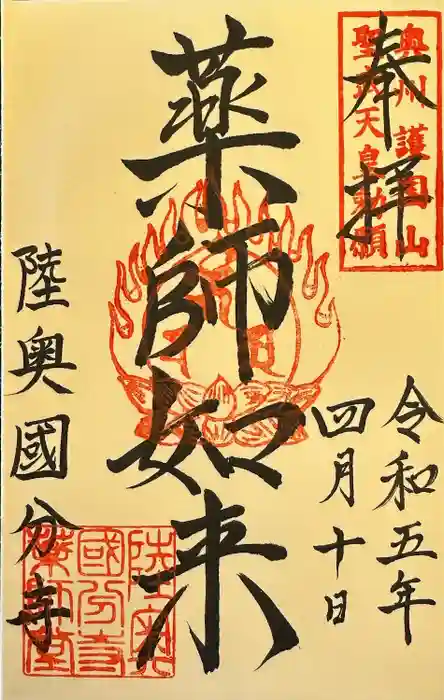 奉拝
奥州 護国山
聖武天皇勅願
令和五年
四月十日
薬師如来
陸奥國分寺
陸奥
國分寺
薬師堂